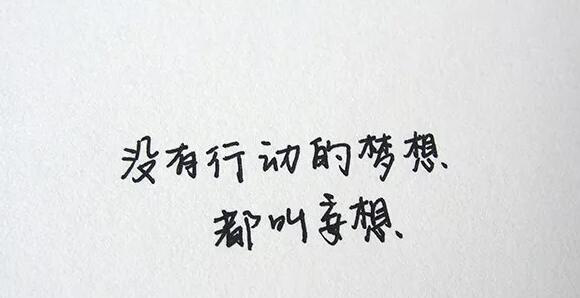 没有行动的梦想
都叫妄想